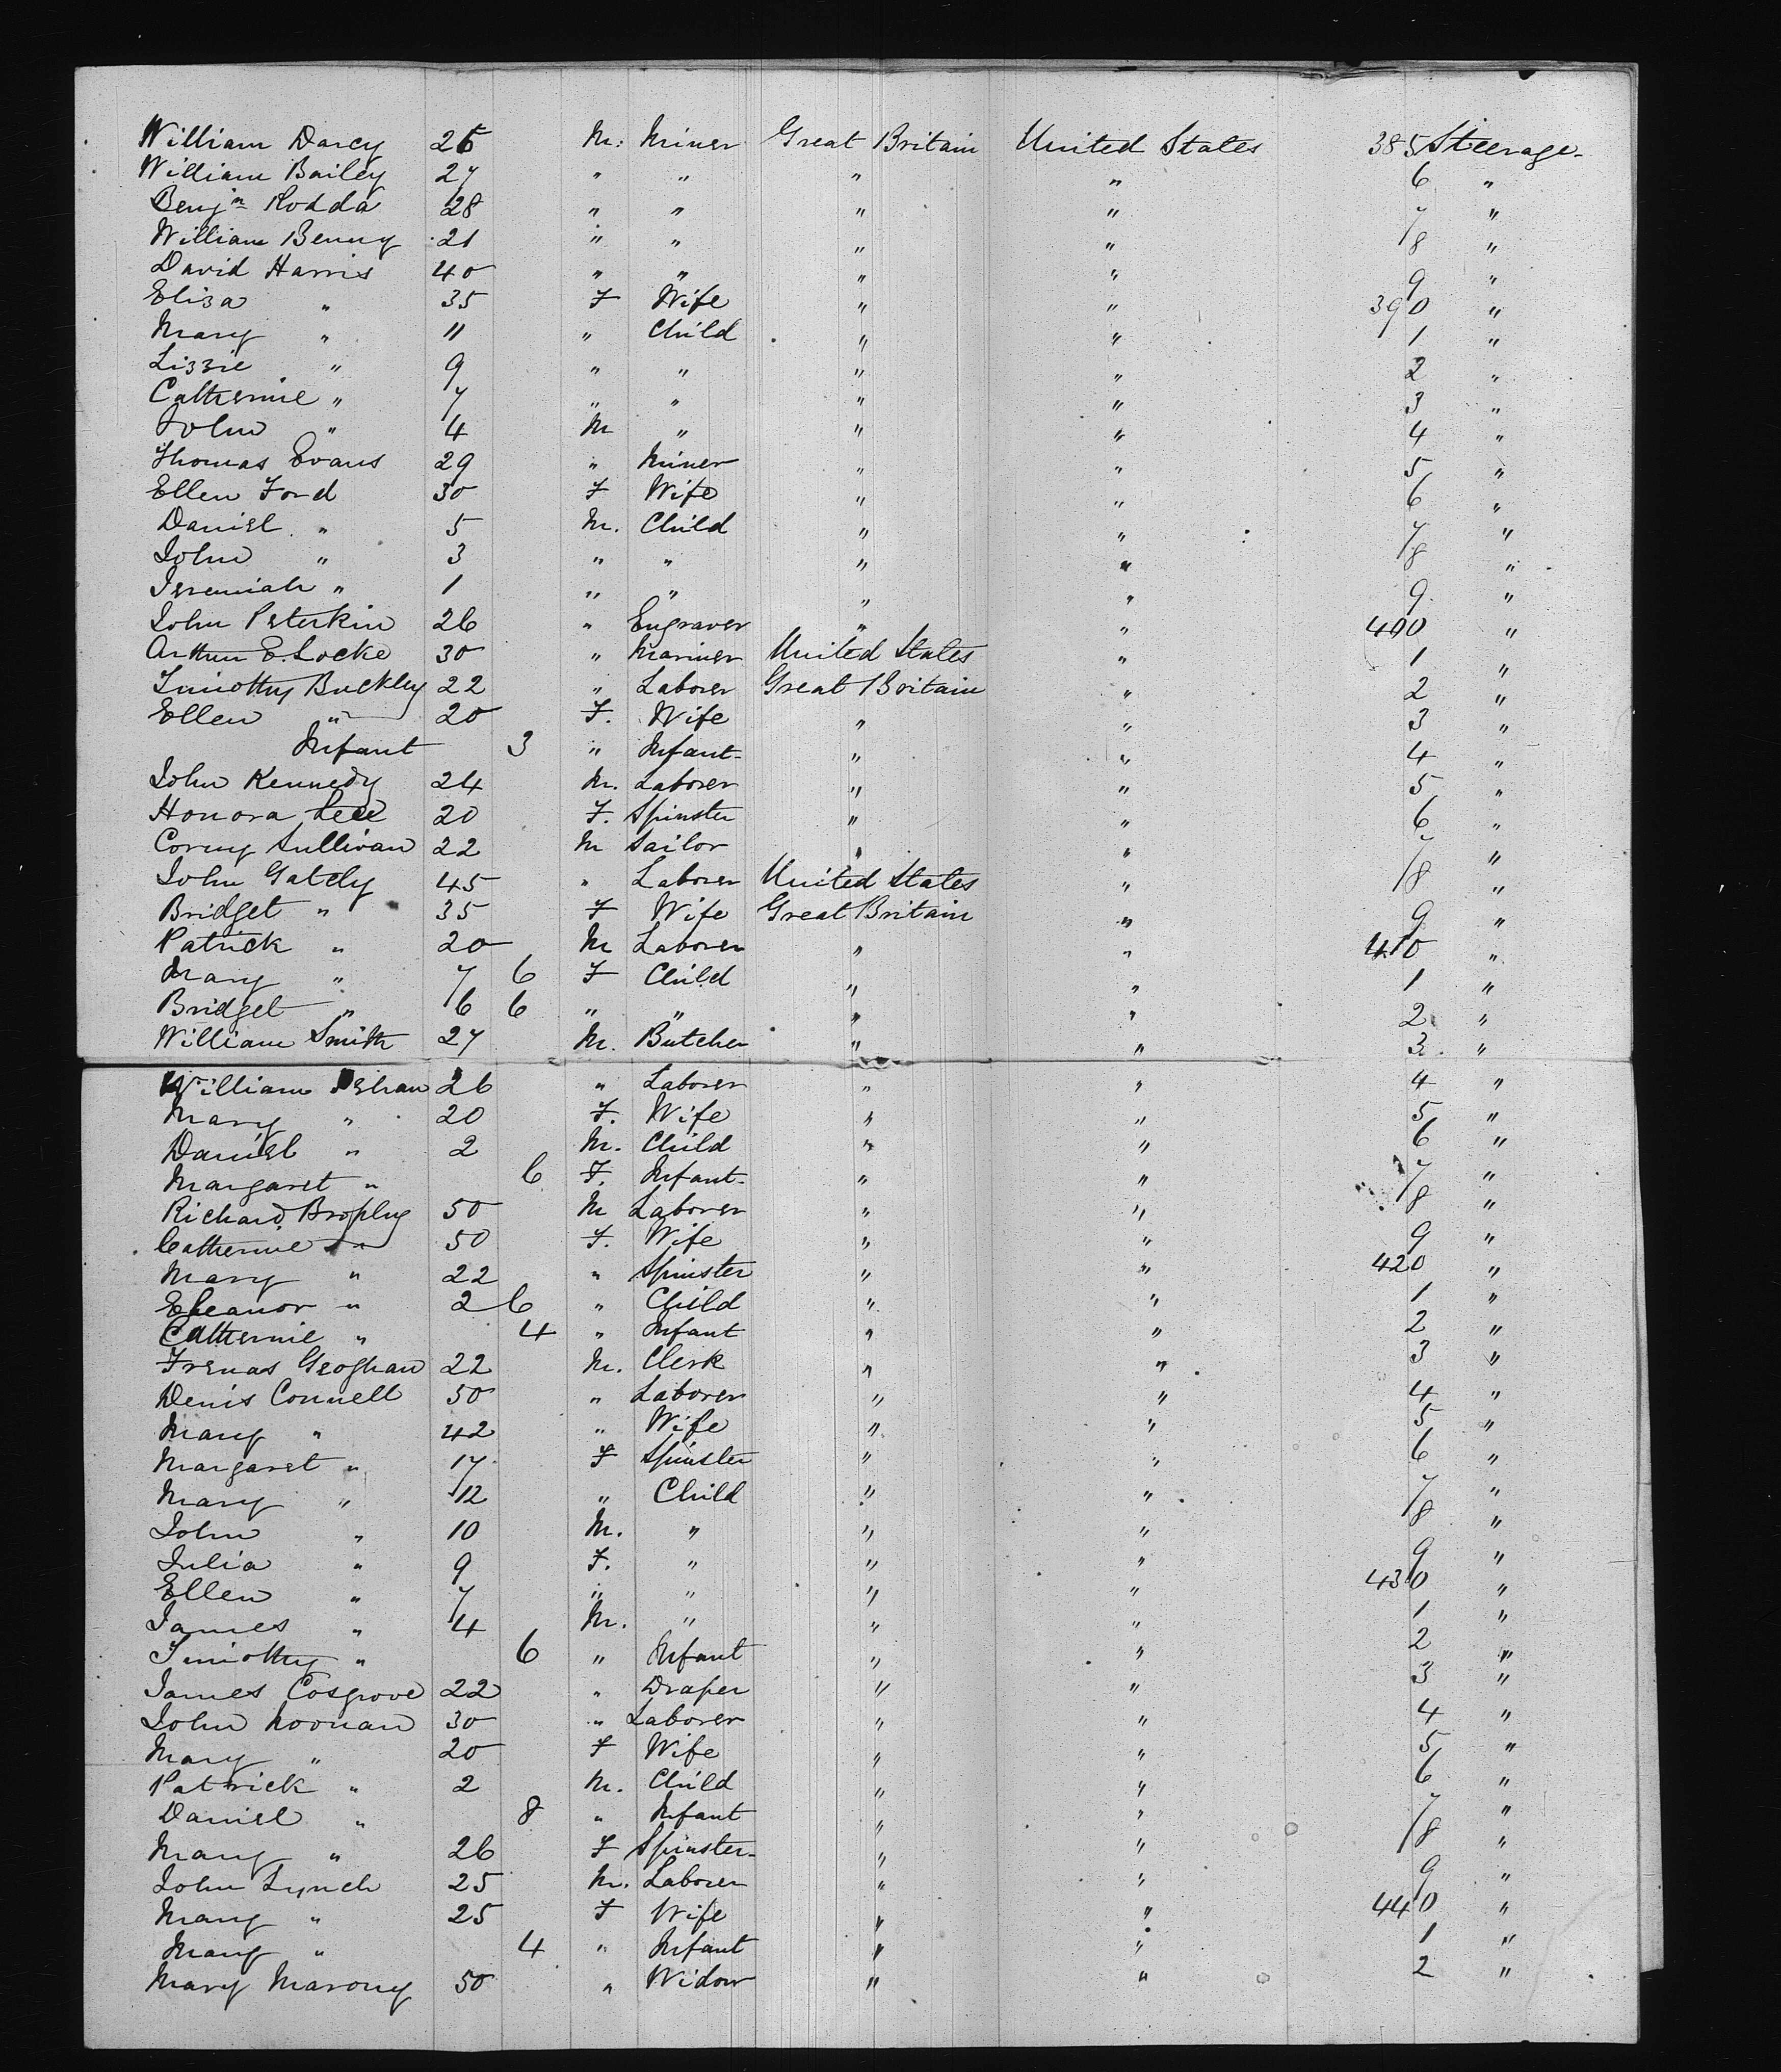 William Darcy 25 M. Miner Great Britain United States 385 Steerage
William Bailey 27 " " " " 6 "
Benjn Rodda 28 " " " " 7 "
William Benny 21 " " " " 8 "
David Harris 40 " " " " 9 "
Eliza " 35 F Wife " " 390 "
Mary " 11 " Child " " 1 "
Lizzie " 9 " " " " 2 "
Catherine " 7 " " " " 3 "
John " 4 M " " " 4 "
Thomas Evans 29 " Miner " " 5 "
Ellen Ford 30 F Wife " " 6 "
Daniel " 5 M. Child " " 7 "
John " 3 " " " " 8 "
Jeremiah " 1 " " " " 9 "
John Peterkin 26 " Engraver " " 400 "
Arthur E. Locke 30 " Mariner United States " 1 "
Timothy Buckley 22 " Laborer Great Britain " 2 "
Ellen " 20 F. Wife " " 3 "
Infant 3 " Infant " " 4 "
John Kennedy 24 M. Laborer " " 5 "
Honora Lee 20 F. Spinster " " 6 "
Corny Sullivan 22 M Sailor " " 7 "
John Gately 45 " Laborer United States " 8 "
Bridget " 35 F Wife Great Britain " 9 "
Patrick " 20 M Laborer " " 410 "
Mary " 7 6 F Child " " 1 "
Bridget " 6 6 " " " " 2 "
William Smith 27 M. Butcher " " 3 "
William 26 " Laborer " " 4 "
Mary " 20 F. Wife " " 5 "
Daniel " 2 M. Child " " 6 "
Margaret " 6 F. Infant " " 7 "
Richard Brophy 50 M Laborer " " 8 "
Catherine " 50 F. Wife " " 9 "
Mary " 22 " Spinster " " 420 "
Eleanor " 2 6 " Child " " 1 "
Catherine " 4 " Infant " " 2 "
Geoghan 22 M. Clerk " " 3 "
Denis Connell 50 " Laborer " " 4 "
Mary " 42 " Wife " " 5 "
Margaret " 17 F Spinster " " 6 "
Mary " 12 " Child " " 7 "
John " 10 M. " " " 8 "
Julia " 9 F. " " " 9 "
Ellen " 7 " " " " 430 "
James " 4 M. " " " 1 "
Timothy " 6 " Infant " " 2 "
James Cosgrove 22 " Draper " " 3 "
John Noonan 30 " Laborer " " 4 "
Mary " 20 F Wife " " 5 "
Patrick " 2 M. Child " " 6 "
Daniel " 8 " Infant " " 7 "
Mary " 26 F Spinster " " 8 "
John Lynch 25 M. Laborer " " 9 "
Mary " 25 F Wife " " 440 "
Mary " 4 " Infant " " 1 "
Mary Marony 50 " Widow " " 2 "